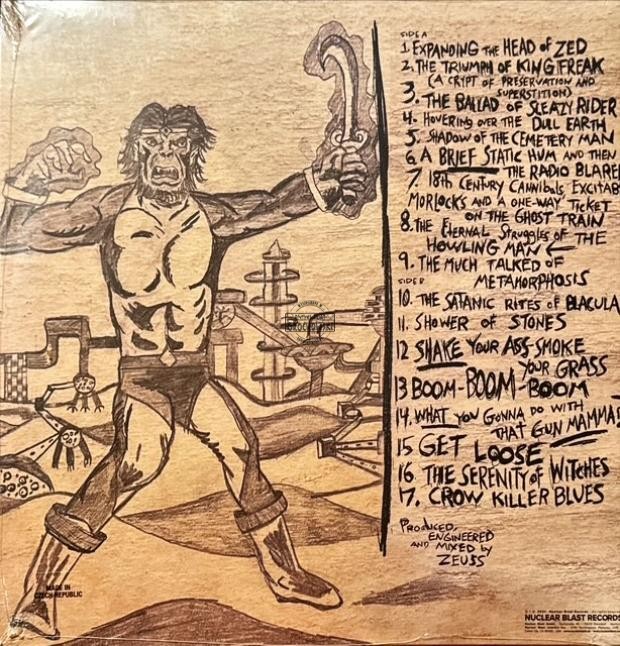 SIDE A
1. EXPANDING THE HEAD OF ZED
2. THE TRIUMPH OF KING FREAK
(A CRYPT OF PRESERVATION AND
SUPERSTITION)
3. THE BALLAD OF SLEAZY RIDER
4. HOVERING OVER THE DULL EARTH
5. SHADOW OF THE CEMETERY MAN
6. A BRIEF STATIC HUM AND THEN
THE RADIO BLARE
7. 18th CENTURY CANNIBALS EXCITAB
MORLOCKS AND A ONE-WAY TICKET
ON THE GHOST TRAIN
8. THE ETERNAL STRUGGLES OF THE
HOWLING MAN
9. THE MUCH TALKED OF
METAMORPHOSIS
SIDE B
10. THE SATANIC RITES OF BLACULA
11. SHOWER OF STONES
12 SHAKE YOUR ASS-SMOKE
YOUR GRASS
13 BOOM-BOOM-BOOM
14. WHAT YOU GONNA DO WITH
THAT GUN MAMMA?
15 GET LOOSE
16. THE SERENITY OF WITCHES
17. CROW KILLER BLUES
PRODUCED,
ENGINEERED
AND MIXED by
ZEUSS
MADE IN
CZECH REPUBLIC
NUCLEAR BLAST RECORDS